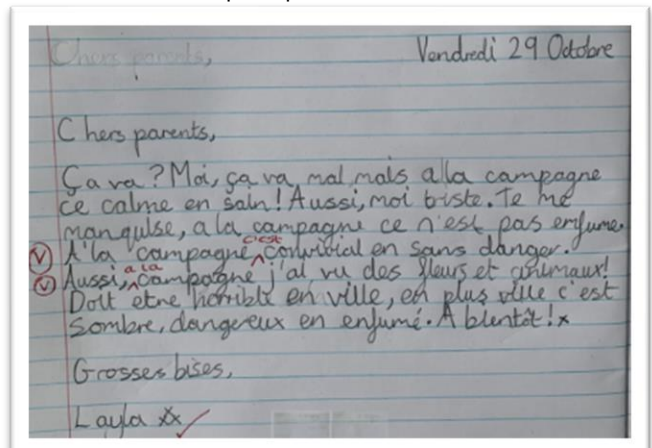 Chers parents,
Vendredi 29 Octobre
Chers parents,
Ça va? Moi, ça va mal, mais a la campagne
ce calme en sain! Aussi, moi triste. Te me
manquise, a la campagne ce n'est pas enfumé.
V A' la campagne, c'est convivial en sans danger.
V Aussi, a la campagne j'ai vu des fleurs et animaux!
Doit etre horrible en ville, en plus ville c'est
sombre, dangereux en enfumé. A bientôt! x
Grosses bises,
Layla xx